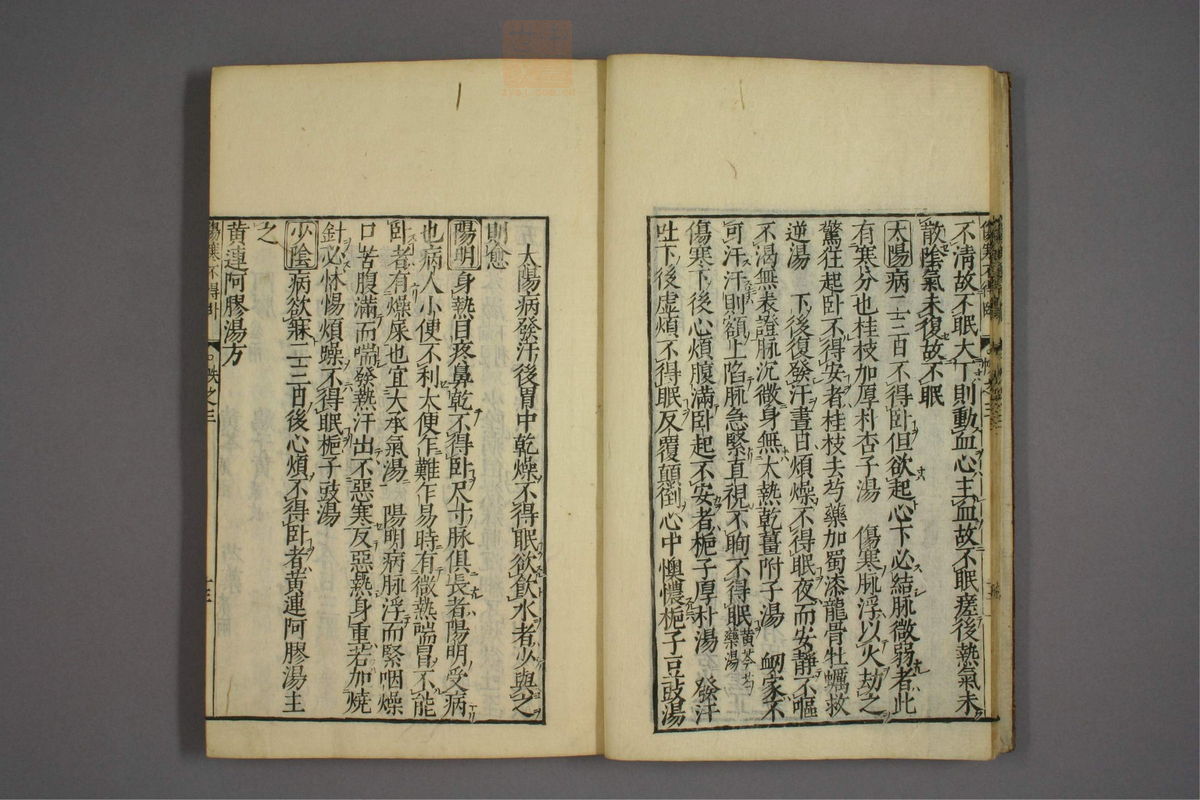 不清故不眠大下則動血心主血故不眠瘥後熱氣未
散陰氣未復故不眠
太陽病二三日不得卧但欲起心下必結脉微弱者此
有寒分也桂枝加厚朴杏子湯　傷寒脉浮以火劫之
驚狂起卧不得安者桂枝去芍藥加蜀漆龍骨牡蠣救
逆湯　下後復發汗晝日煩燥不得眠夜而安靜不嘔
不渴無表證脉沉微身無大熱乾薑附子湯　衂家不
可汗汗則額上陷脉急緊直視不眴不得眠黄芩芍藥湯
傷寒下後心煩腹滿卧起不安者梔子厚朴湯　發汗
吐下後虚煩不得眠反覆顛倒心中懊憹梔子豆豉湯
太陽病發汗後胃中乾燥不得眠欲飲水者少與之
則愈
陽明身熱目疼鼻乾不得卧尺寸脉俱長者陽明受病
也病人小便不利大便乍難乍易時有微熱喘冒不能
卧者有燥屎也宜大承氣湯　陽明病脉浮而緊咽燥
口苦腹滿而喘發熱汗出不惡寒反惡熱身重若加燒
針必怵惕煩躁不得眠梔子豉湯
少陰病欲寐二三日後心煩不得卧者黄連阿膠湯主
之
黄連阿膠湯方